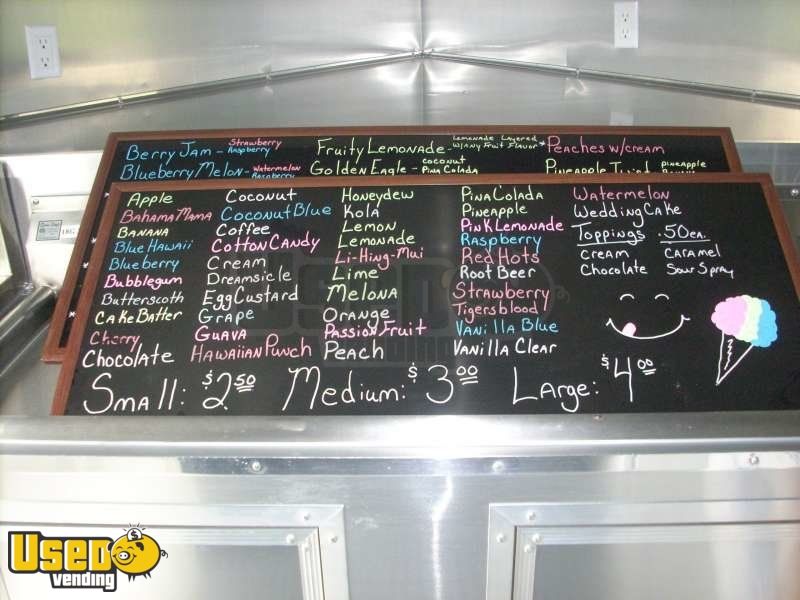 Berry Jam - Strawberry Raspberry
Blueberry Melon - Watermelon Raspberry
Fruity Lemonade - Lemonade Layered w/Any Fruit Flavor
Golden Eagle - Coconut Pina Colada
Peaches w/cream
Pineapple Twist pineapple
Apple
Bahama Mama
Banana
Blue Hawaii
Blueberry
Bubblegum
Butterscoth
Cake Batter
Cherry
Chocolate
Coconut
Coconut Blue
Coffee
Cotton Candy
Cream
Dreamsicle
Egg Custard
Grape
Guava
Hawaiian Punch
Honeydew
Kola
Lemon
Lemonade
Li-Hing-Mui
Lime
Melona
Orange
Passion Fruit
Peach
Pina Colada
Pineapple
Pink Lemonade
Raspberry
Red Hots
Root Beer
Strawberry
Tigersblood
Vanilla Blue
Vanilla Clear
Watermelon
Wedding Cake
Toppings .50 ea.
Cream Caramel
Chocolate Sour Spray
Small: $2.50 Medium: $3.00 Large: $4.00
Used
vending